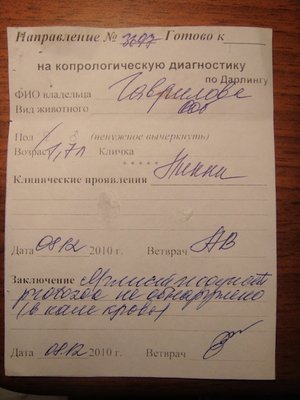 Направление № 3697 Готово к
на копрологическую диагностику
по Дарлингу
ФИО владельца Гаврилова
Вид животного соб
Пол ♂ (ненужное вычеркнуть)
Возраст 1,7л Кличка
Клинические проявления Никки
Дата 08.12 2010 г. Ветврач АВ
Заключение Яглист и ооцист
protozoa не обнаружено
(в кале кровь)
Дата 08.12 2010 г. Ветврач